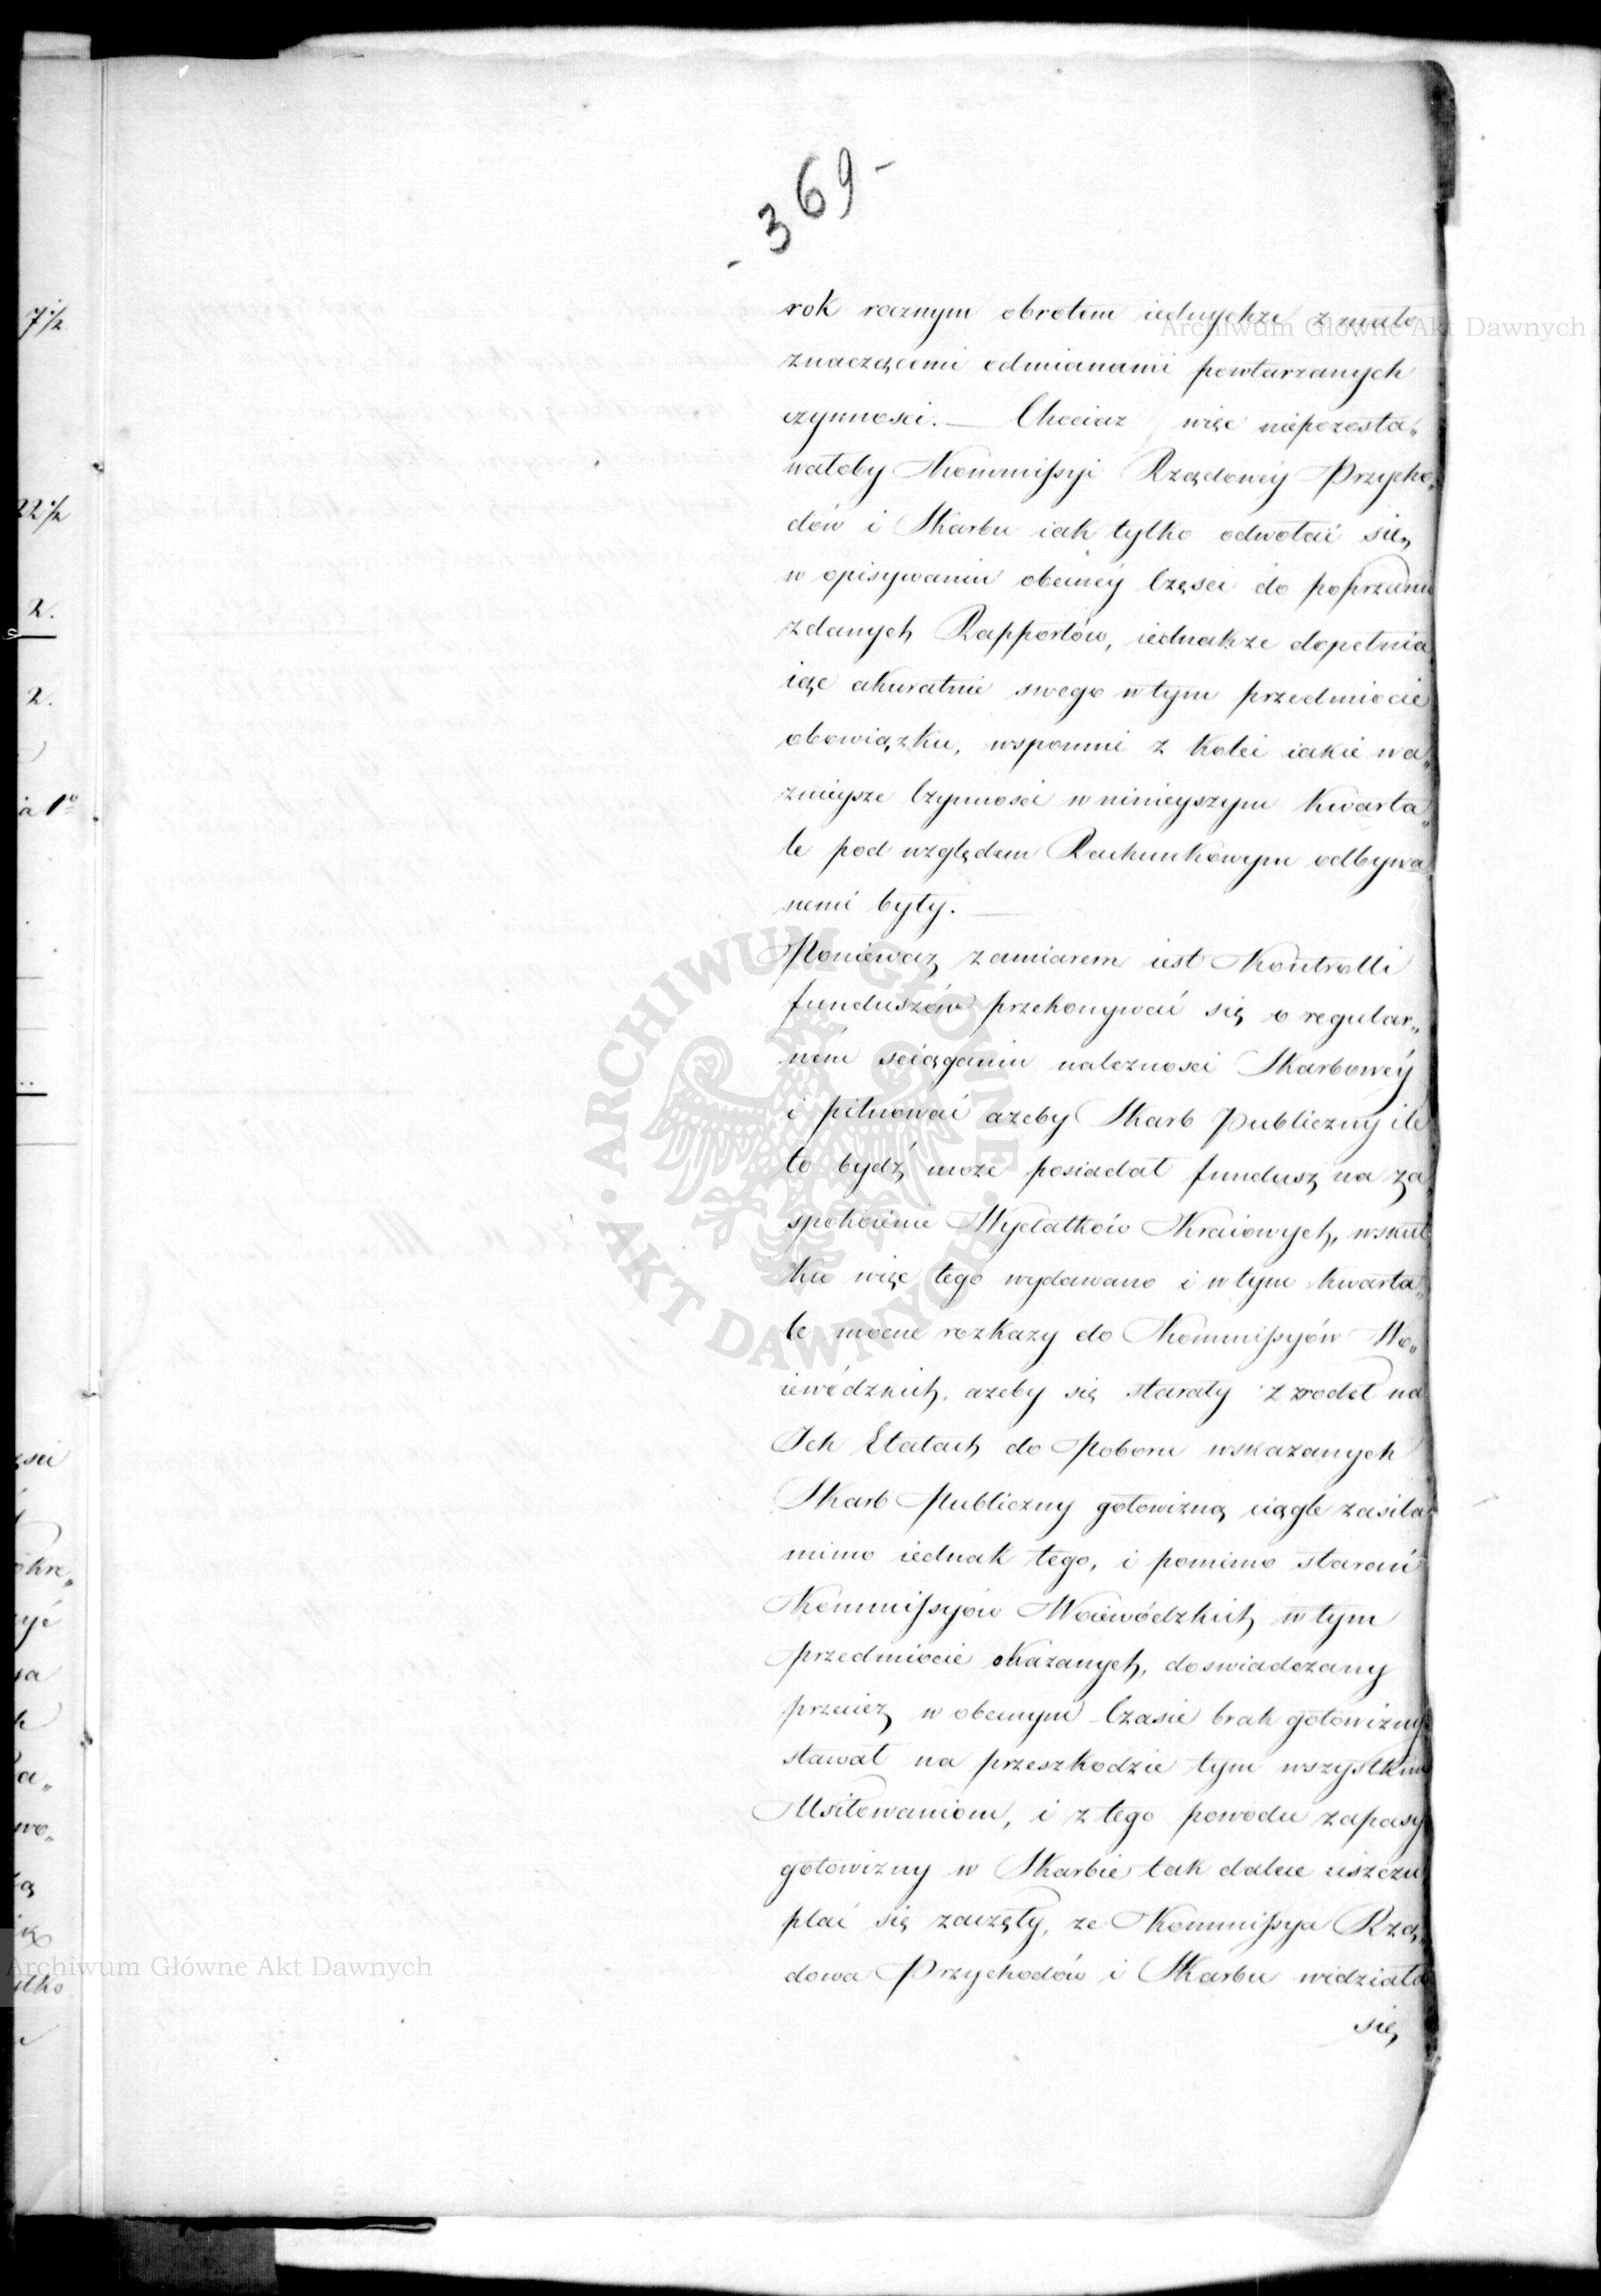 - 369 -
rok rocznym obrotem iednychze z mało
znaczącemi odmianami powtarzanych
czynnosci. — Chociaz więc niepozosta„
wałoby Kommissyi Rządowéy Przycho„
dów i Skarbu iak tylko odwołać się,
w opisywaniu obecnéy Częsci do poprzednio
zdanych Rapportów, iednakze dopełnia
iąc akuratnie swego w tym przedmiocie
obowiązku, wspomni z kolei iakie wa„
znieysze Czynnosci w ninieyszym Kwarta„
le pod względem Rachunkowym odbywa
nemi były. —
Poniewaz zamiarem iest Kontrolli
funduszów przekonywać się o regular„
ném sciąganiu naleznosci Skarbowéy
i pilnować azeby Skarb Publiczny ile
to bydź moze posiadał fundusz na za
spokoienie Wydatków Kraiowych, wskut
ku więc tego wydawano i w tym kwarta„
le mocne rozkazy do Kommissyów Wo„
iewódzkich, azeby się starały z zrodeł na
Ich Etatach do Poboru wskazanych
Skarb Publiczny gotowizną ciągle zasilać
mimo iednak tego, i pomimo starań
Kommissyów Woiewódzkich w tym
przedmiocie okazanych, doswiadczany
przeciez w obecnym Czasie brak gotowizny
stawał na przeszkodzie tym wszystkim
Usiłowaniom, i z tego powodu zapasy
gotowizny w Skarbie tak dalece uszczu
plać się zaczęły, ze Kommissya Rzą„
dowa Przychodów i Skarbu widziała
się
7 1/2
22 1/2
2.
2.
a 1º
okre„
yć
wo„
ylko
Archiwum Główne Akt Dawnych
ARCHIWUM GŁÓWNE · AKT DAWNYCH ·
Archiwum Główne Akt Dawnych